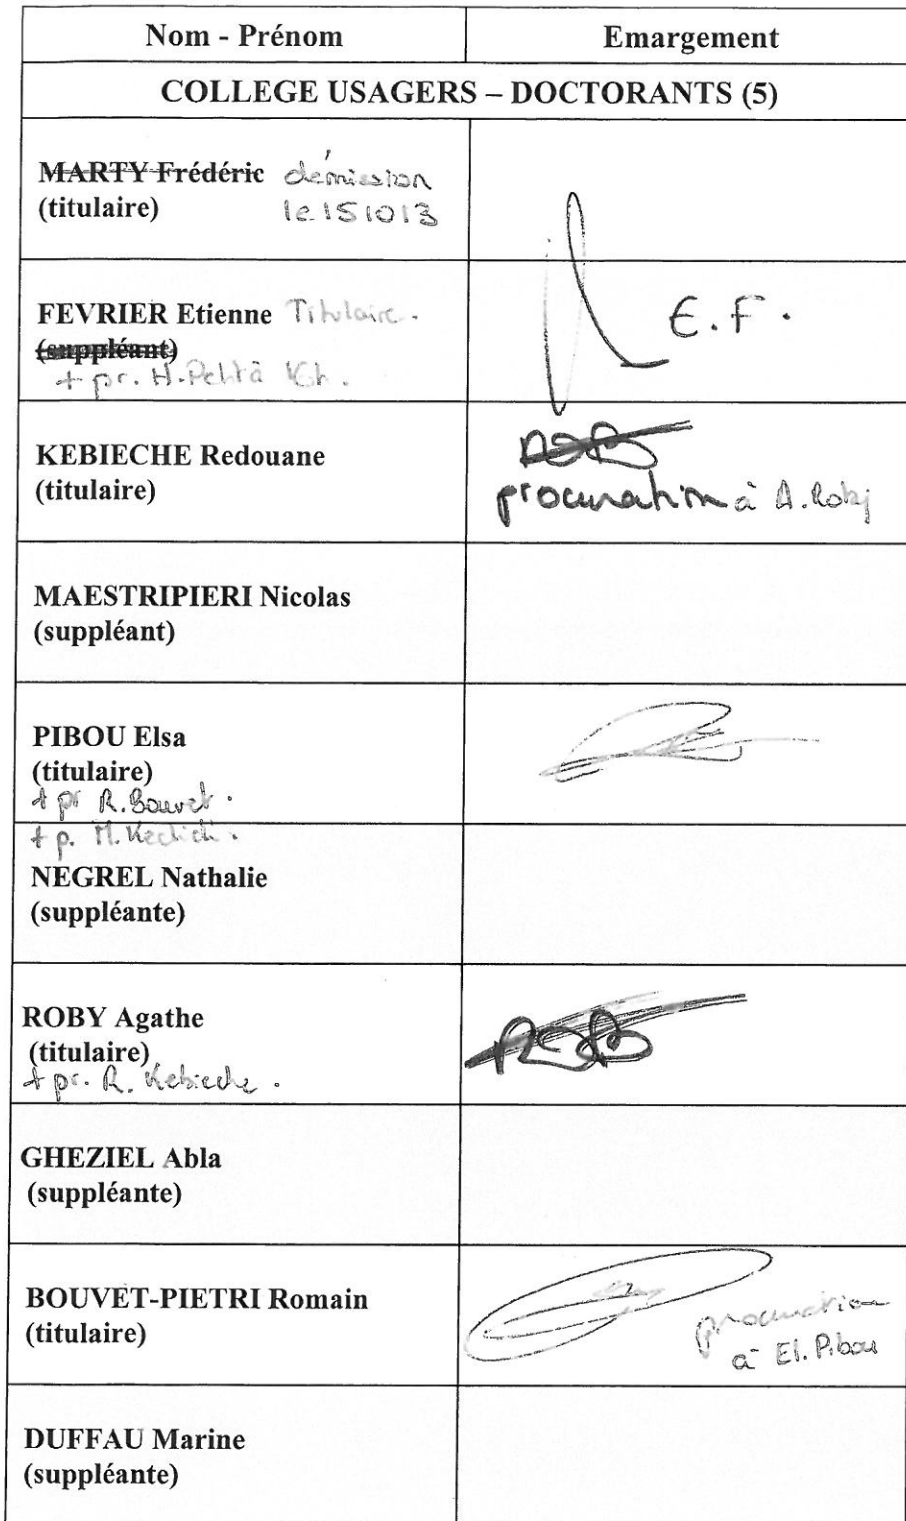 Nom - Prénom
Emargement
COLLEGE USAGERS – DOCTORANTS (5)
MARTY Frédéric démission
(titulaire) le 151013
FEVRIER Etienne Titulaire.
(suppléant)
+ pr. H. à 16h.
E.F.
KEBIECHE Redouane
(titulaire)
procuration à A. Roby
MAESTRIPIERI Nicolas
(suppléant)
PIBOU Elsa
(titulaire)
+ pr R. Bouvet.
+ p. M.
NEGREL Nathalie
(suppléante)
ROBY Agathe
(titulaire)
+ pr. R. Kebieche.
GHEZIEL Abla
(suppléante)
BOUVET-PIETRI Romain
(titulaire)
procuration
à El. Pibou
DUFFAU Marine
(suppléante)